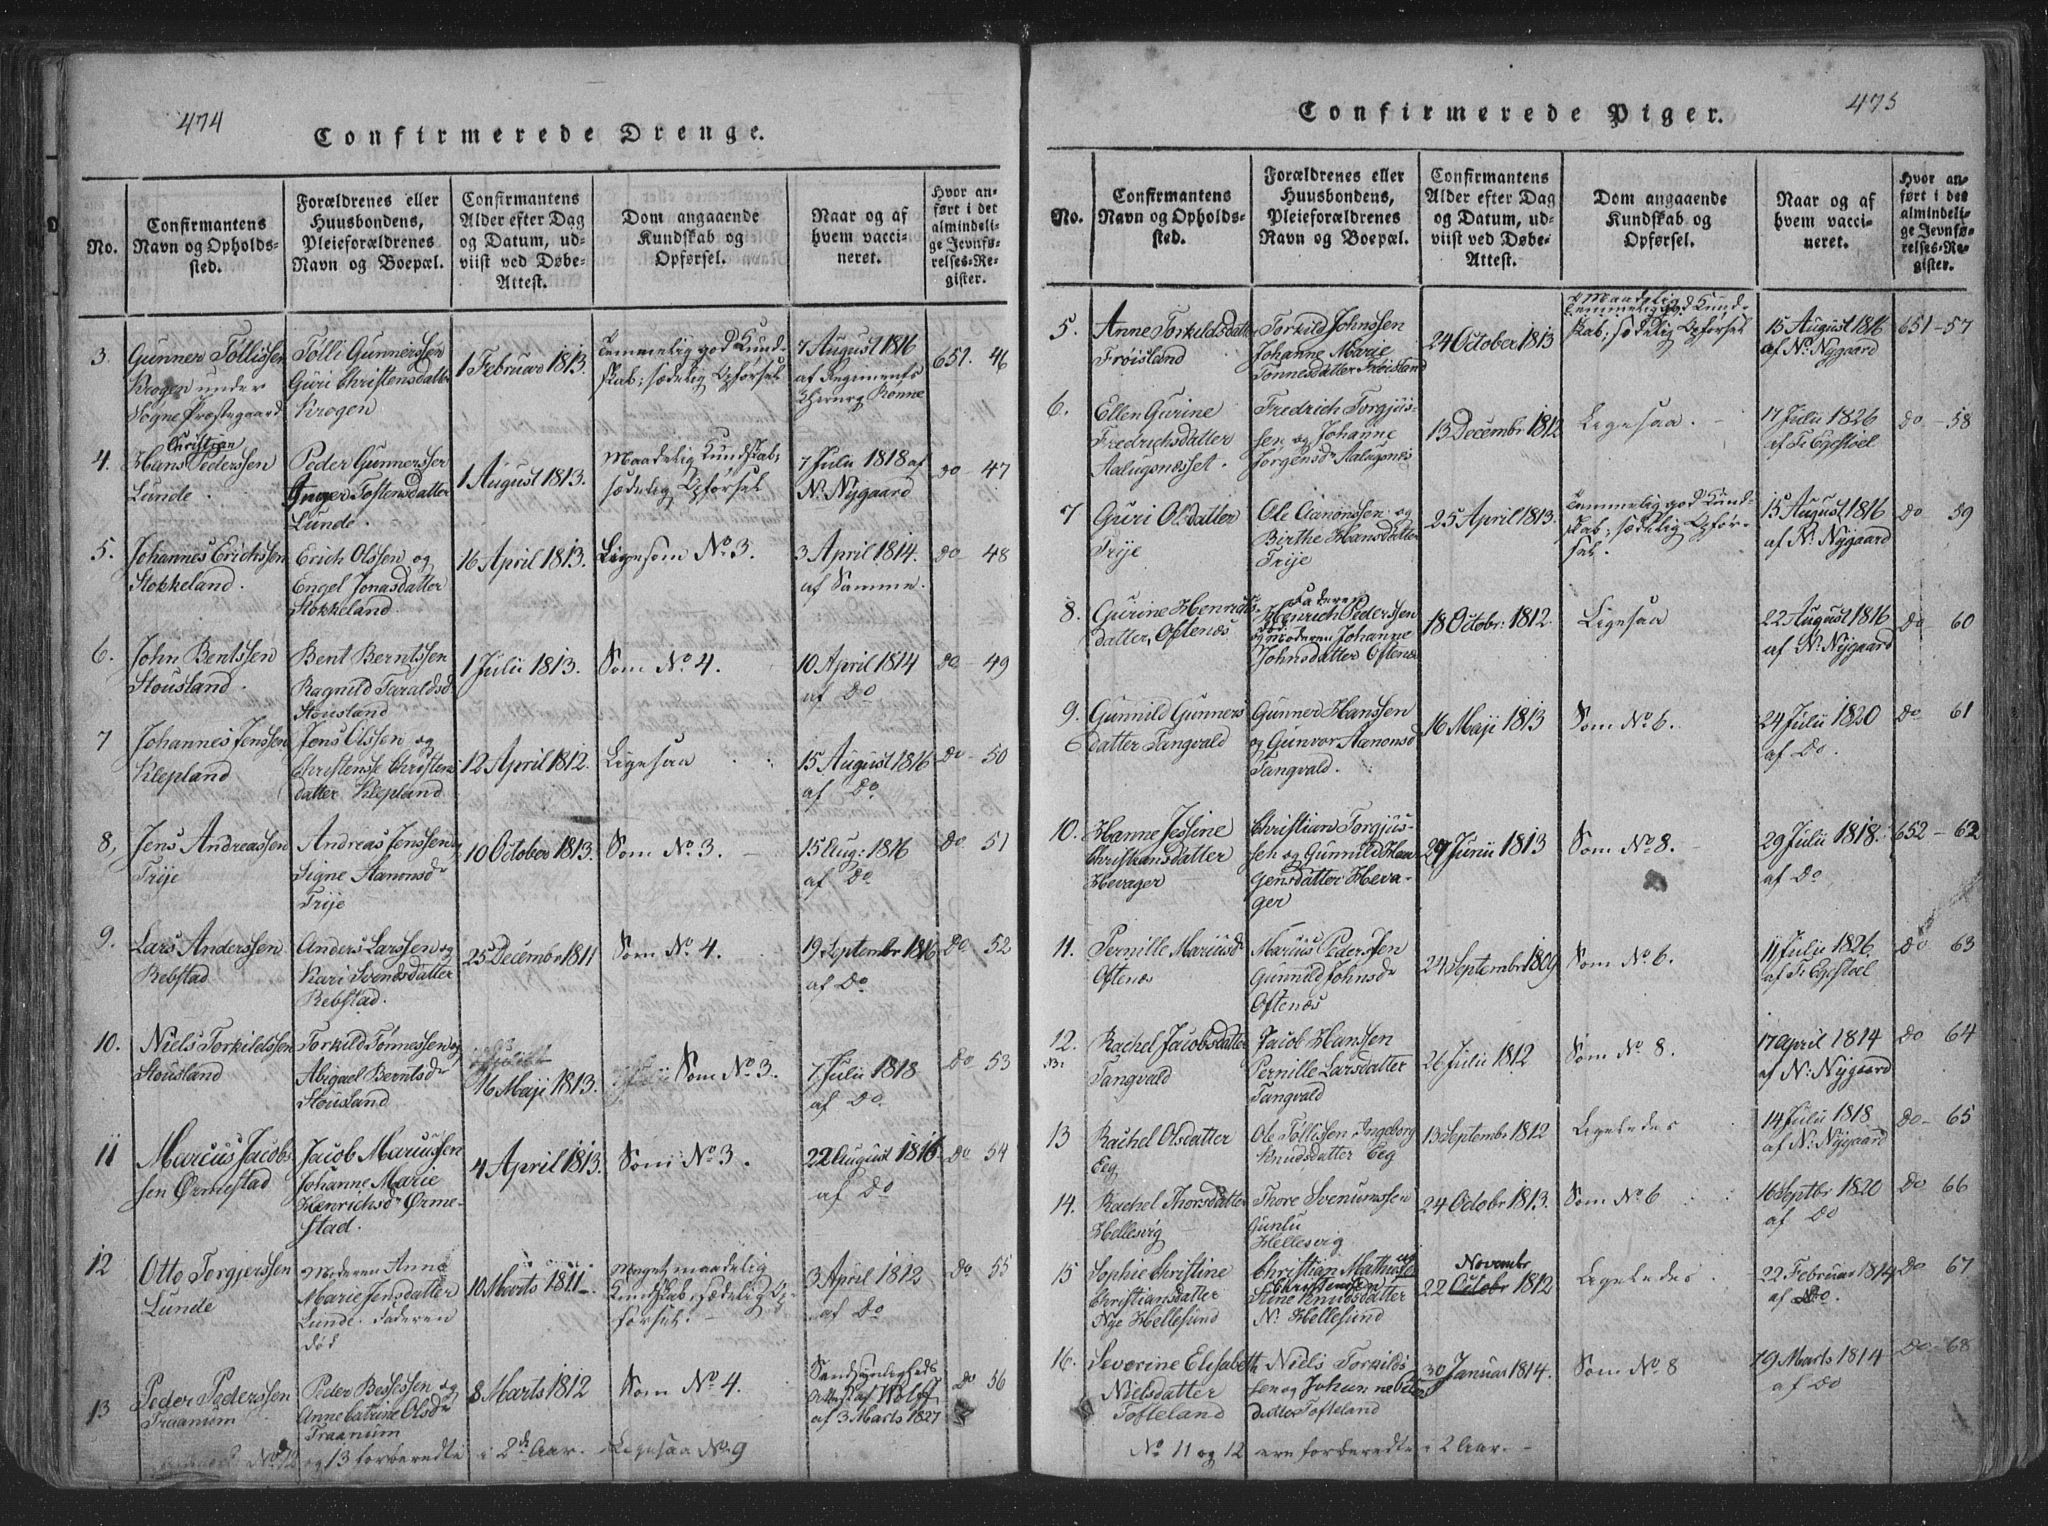 474
Confirmerede Drenge.
No.
Confirmantens Navn og Opholds-sted.
Forældrenes eller Huusbondens, Pleieforældrenes Navn og Boepæl.
Confirmantens Alder efter Dag og Datum, ud-viist ved Døbe-Attest.
Dom angaaende Kundskab og Opførsel.
Naar og af hvem vacci-neret.
Hvor an-ført i det almindeli-ge Jevnfø-relses-Re-gister.
3. Gunner Tollissen Krogen under Sogne Præstegaard
Tolli Gunnerssen Guri Christensdatter Krogen
1 Februar 1813.
Temmelig god Kund-skab; sædelig Opførsel
7 August 1816 af Regiments Chirurg Rønne
651. 46
4. Hans Christian Pederssen Lunde.
Peder Gunnerssen Inger Toftensdatter Lunde.
1 August 1813.
Maadelig Kundskab; sædelig Opførsel
7 Julii 1818 af N: Nygaard
Do - 47
5. Johannes Erichssen Stokkeland.
Erich Olssen og Engel Jonasdatter Stokkeland.
16 April 1813.
Ligesom No 3.
3 April 1814. af Samme.
Do - 48
6. John Bentssen Stousland.
Bent Berntssen Ragnild Taraldsd Stousland
1 Julii 1813.
Som No 4.
10 April 1814 af Do
Do - 49
7 Johannes Jenssen Klepland
Jens Olssen og Christense Christens datter Klepland
12 April 1812.
Ligesaa
15 August 1816 af Do
Do - 50
8, Jens Andreassen Trije
Andreas Jenssen Signe Aanonsdr Trije
10 October 1813.
Som No 3.
15 Aug: 1816 af Do
Do 51
9. Lars Anderssen Rebstad
Anders Larssen og Kari Svendsdatter Rebstad.
25 Decembr 1811
Som No 4.
19 Septembr 1816 af Do
Do 52
10. Niels Torkildssen Stousland
Torkild Tønnessen og Abigael Berntsdr Stousland
16 Maji 1813.
Som No 3.
7 Julii 1818 af Do
Do 53
11 Marcus Jacobs-sen Ørmestad
Jacob Mariussen Johanne Marie Henrichsdr Ørme-stad.
4 April 1813.
Som No 3.
22 August 1816. af Do
Do 54
12 Otto Torgjerssen Lunde
Moderen Anna Marie Jensdatter Lunde. Faderen død
10 Marts 1811
Meget maadelig Kundskab, sædelig Op-førsel.
3 April 1812 af Do
Do 55
13 Peder Pederssen Traanum
Peder Bessessen og Anne Catrine Olsdr Traanum
8 Marts 1812
Som No 4.
Sandsynligheds Attest af Wolff af 3 Marts 1827
Do 56
No 12 og 13 forberedte i 2de Aar. Ligesaa No 9
475
Confirmerede Piger.
No.
Confirmantens Navn og Opholds-sted.
Forældrenes eller Huusbondens, Pleieforældrenes Navn og Boepæl.
Confirmantens Alder efter Dag og Datum, ud-viist ved Døbe-Attest.
Dom angaaende Kundskab og Opførsel.
Naar og af hvem vacci-neret.
Hvor an-ført i det almindeli-ge Jevnfø-relses-Re-gister.
5. Anne Torkildsdatter Frøisland
Torkild Johnssen Johanne Marie Tønnesdatter Frøisland
24 October 1813
Maadelig Temmelig god Kund-skab; sædelig Opførsel
15 August 1816 af N: Nygaard
651 - 57
6. Ellen Gurine Fredrichsdatter Aalugsnæsset.
Fredrich Torgjus-sen og Johanne Jørgensdr Aalugsnæs
13 Decembr 1812
Ligesaa.
17 Julii 1826 af Fr Egestøel
Do - 58
7 Guri Olsdatter Trije
Ole Aanonssen og Birthe Hansdatter Trije
25 April 1813.
Temmelig god Kund-skab; sædelig Opfør-sel.
15 August 1816 af N: Nygaard
Do 59
8. Gurine Henrichs-datter, Oftenæs
Faderen Henrich Pederssen og Moderen Johanne Johnsdatter Oftenæs
18 Octobr: 1812.
Ligesaa
22 August 1816 af N: Nygaard
Do - 60
9. Gunnild Gunners datter Tangvald
Gunner Hanssen og Gunvor Aanonsd Tangvald.
16 Maji 1813
Som No 6.
24 Julii 1820 af Do.
Do 61
10. Hanne Jessine Christiansdatter Hevager
Christian Torgjus-sen og Gunnild Haa-gensdatter Heva-ger
29 Junii 1813
Som No 8.
29 Julii 1818. af Do
652 - 62
11. Pernille Mariusd Oftenæs
Marius Pederssen Gunnild Johnsdr Oftenæs
24 Septembr 1809
Som No 6.
11 Julii 1826. af Fr Egestøel
Do 63
12. Rachel Jacobsdatter Tangvald
Jacob Hanssen Pernille Larsdatter Tangvald
26 Julii 1812
Som No 8.
17 April 1814 af N: Nygaard
Do 64
13 Rachel Olsdatter Eeg
Ole Tollissen Ingeborg Knudsdatter Eeg
13 Septembr 1812
Ligeledes
14 Julii 1818 af N: Nygaard
Do - 65
14. Rachel Thorsdatter Hellesvig
Thore Svenumssen Gunlu Hellesvig
24 Octobr 1813.
Som No 6
16 Septbr 1820 af Do
Do 66
15 Sophie Christine Christiansdatter Nye Hellesund
Christian Mathias Christenssen og Stine Knudsdatter N: Hellesund
22 Octobr Novembr 1812
Ligeledes
22 Februar 1814 af Do.
Do - 67
16. Severine Elisabeth Nielsdatter Tofteland
Niels Torkilds-sen og datter Tofteland
30 Januar 1814.
Som No 8
19 Marts 1814 af Do
Do - 68
No 11 og 12 ere forberedte i 2 Aar.